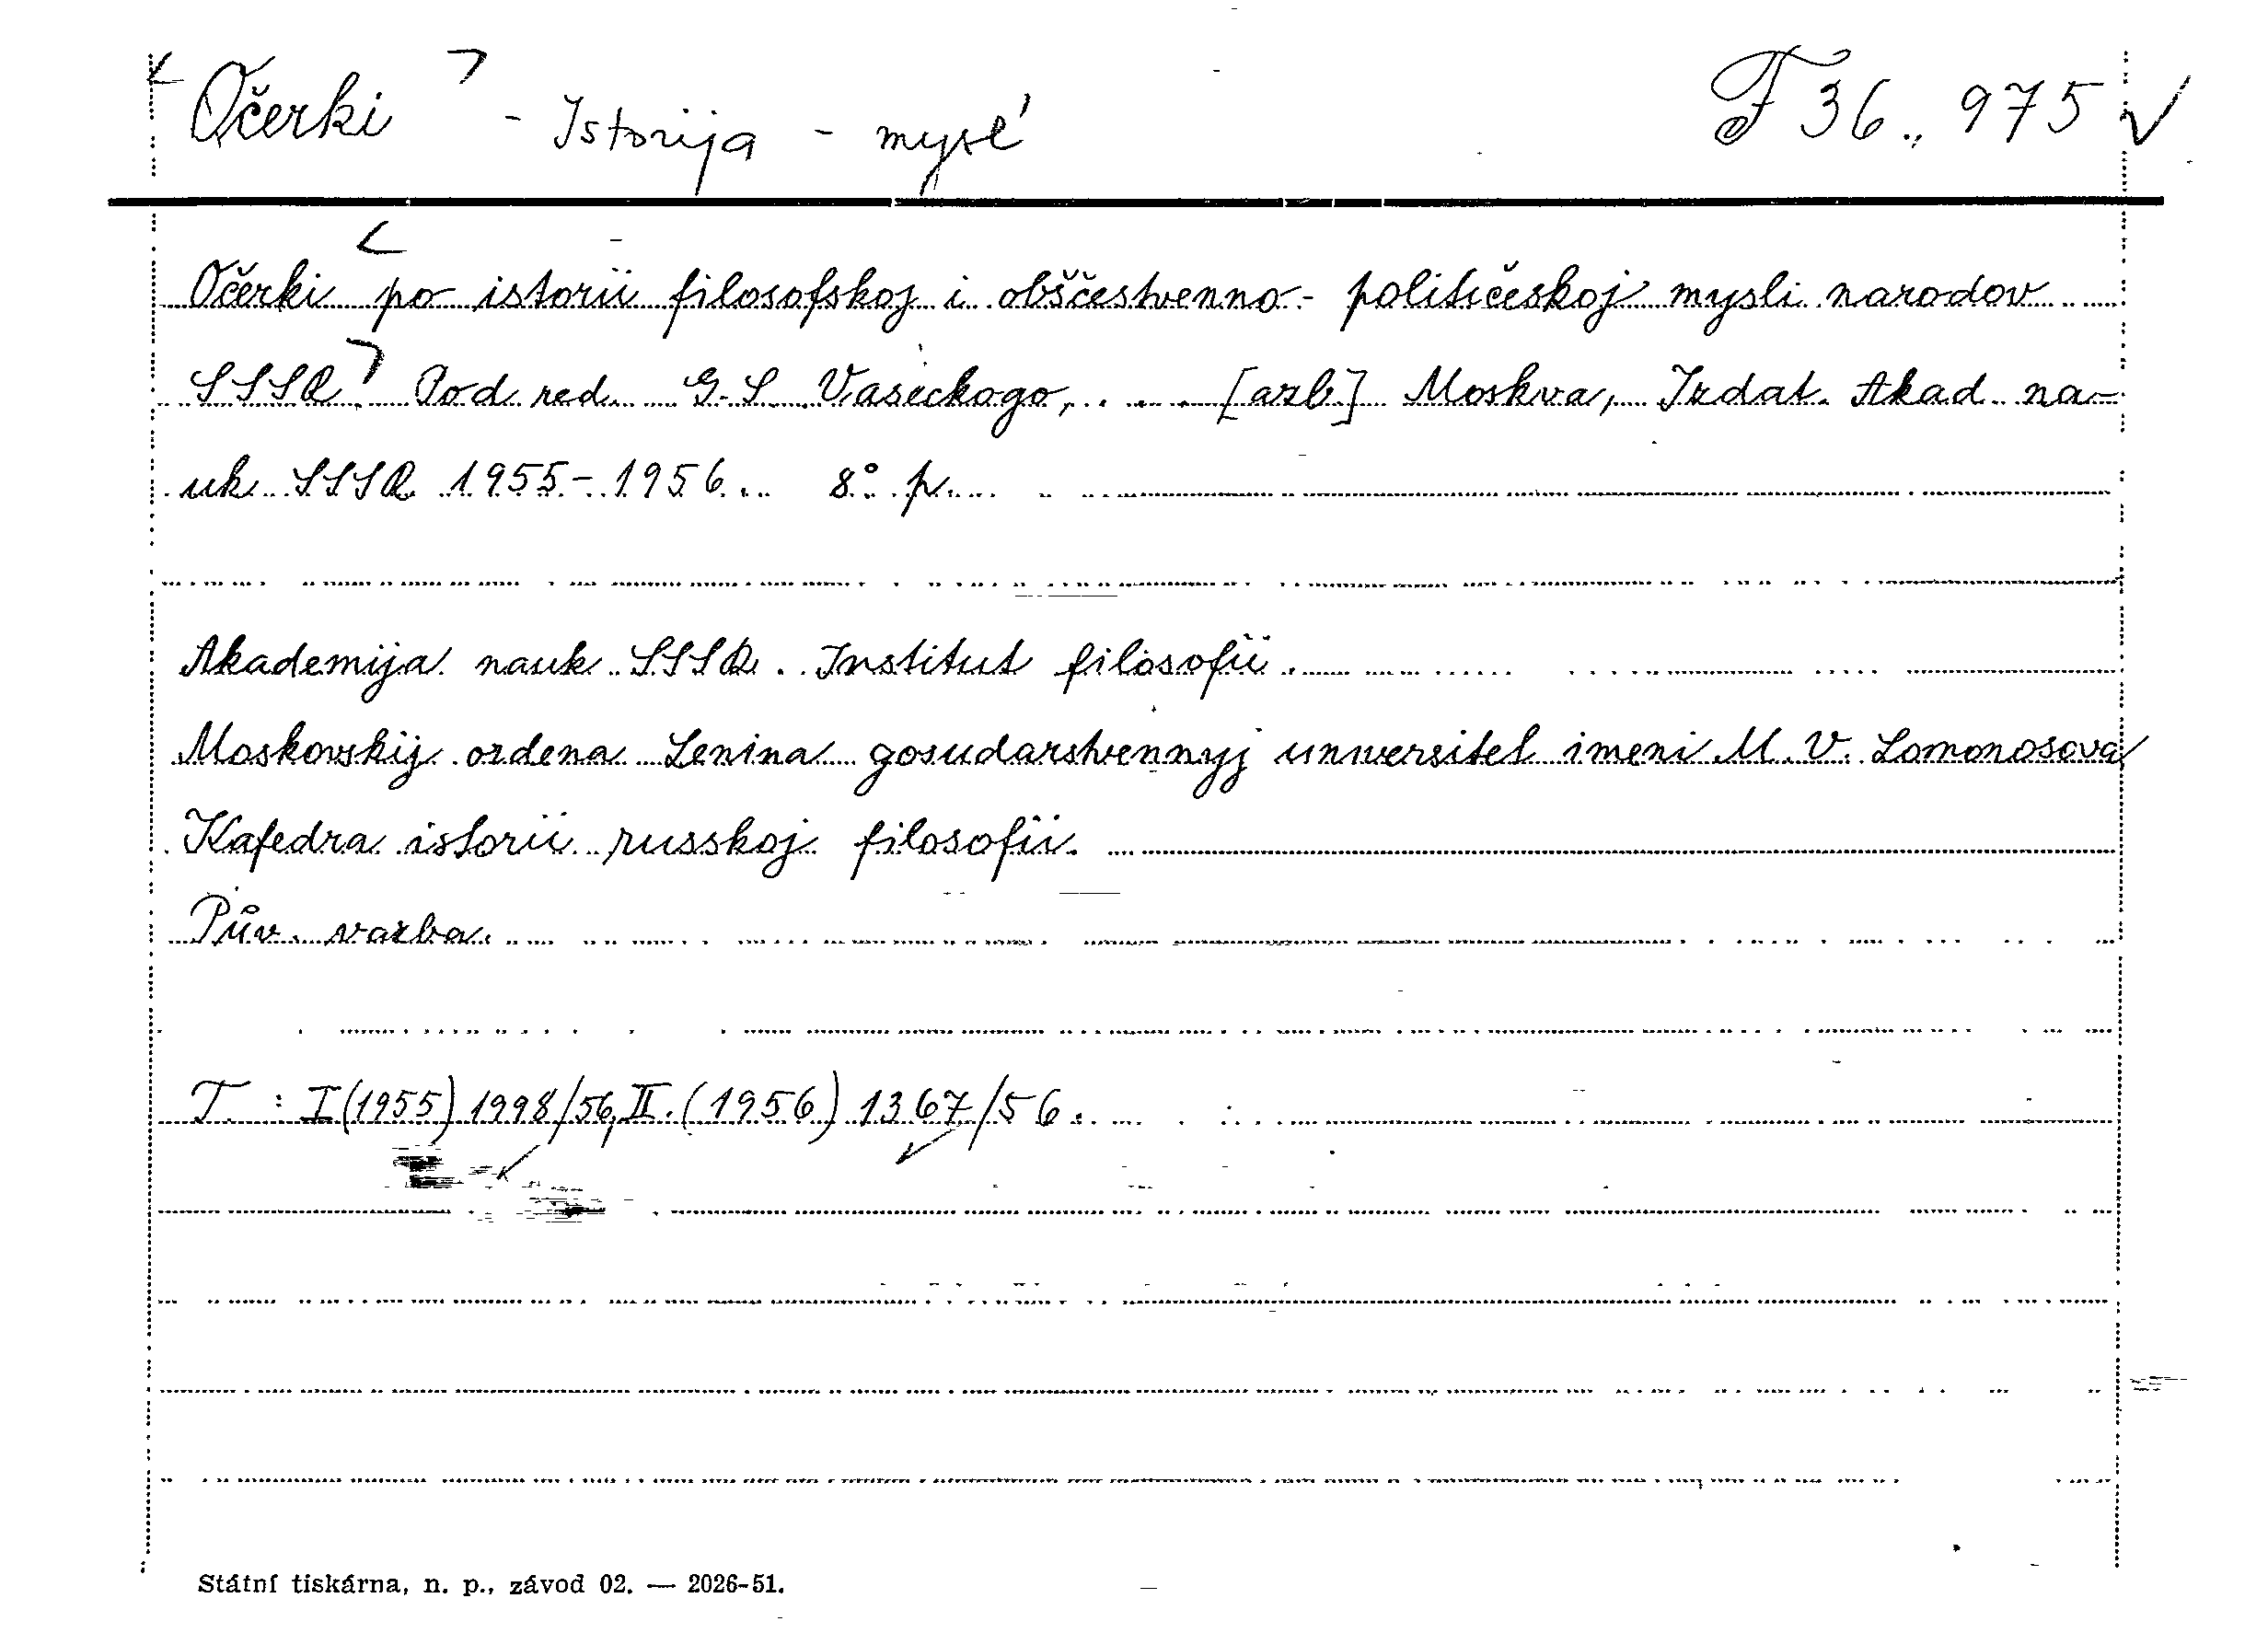 Očerki - Istorija - mysľ F 36.975
Očerki po istorii filosofskoj i obščestvenno-političeskoj mysli narodov
SSSR. Pod red. G. S. Vaseckogo, ... [azb] Moskva, Izdat. Akad. na-
uk SSSR 1955-1956. 8° p.
Akademija nauk SSSR. Institut filosofii.
Moskovskij ordena Lenina gosudarstvennyj universitet imeni M. V. Lomonosova
Kafedra istorii russkoj filosofii.
Pův. vazba.
T. : I(1955) 1998/56, II. (1956) 1367/56.
Státní tiskárna, n. p., závod 02. — 2026-51.